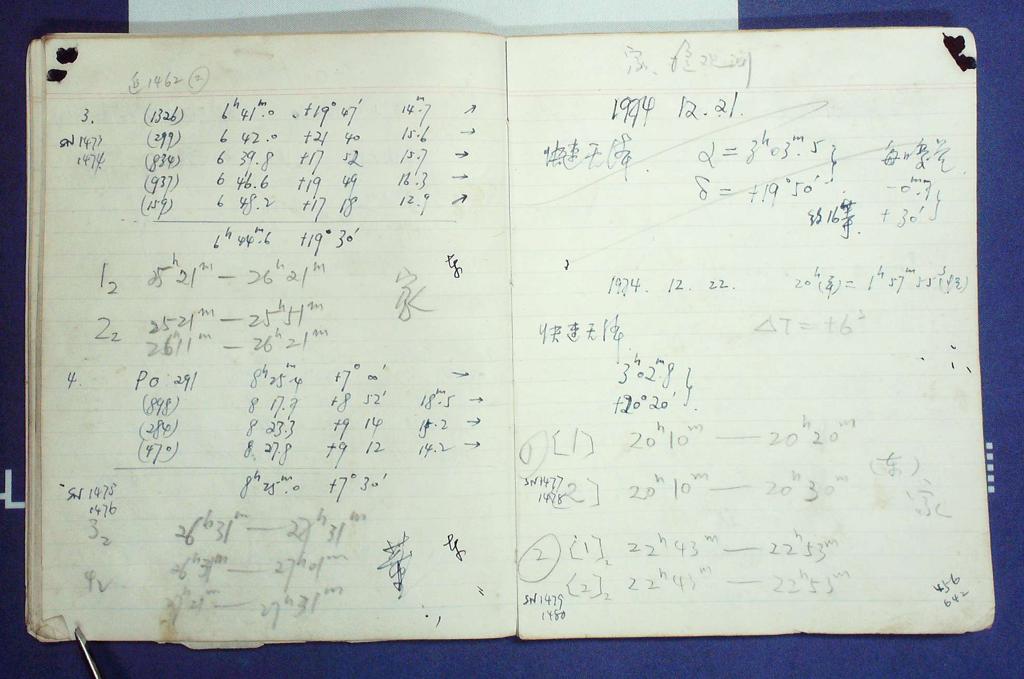 近1462 ②
3. (1326) 6ʰ41ᵐ.0 +19°47′ 14ᵐ.7 ↗
SN1473 (299) 6 42.0 +21 40 15.6 →
1474 (834) 6 39.8 +17 52 15.7 →
(937) 6 46.6 +19 49 16.3 →
(159) 6 48.2 +17 18 12.9 ↗
6ʰ44ᵐ.6 +19°30′
1₂ 25ʰ21ᵐ — 26ʰ21ᵐ 家 东
2₂ 2521ᵐ — 25ʰ51ᵐ
26ʰ11ᵐ — 26ʰ21ᵐ
4. PO 291 8ʰ25ᵐ.4 +7°00′ →
(898) 8 17.9 +8 52′ 18ᵐ.5 →
(284) 8 23.3 +9 14 15.2 →
(470) 8 27.8 +9 12 14.2 →
8ʰ25ᵐ.0 +7°30′
SN1475
1476
3₂ 26ʰ31ᵐ — 27ʰ31ᵐ 东
4₂ 26ʰ31ᵐ — 27ʰ01ᵐ
27ʰ21ᵐ — 27ʰ31ᵐ
1974 12.21.
快速天体 α = 3ʰ03ᵐ.5 }
δ = +19°50′
约16等 +30′ }
1974. 12. 22. 20ʰ = 1ʰ57ᵐ55ˢ
快速天体 ΔT = +6ˢ
3ʰ02ᵐ8 }
+20°20′ }
① [1] 20ʰ10ᵐ — 20ʰ20ᵐ
(东)
SN1477
1478 [2] 20ʰ10ᵐ — 20ʰ30ᵐ 家
② [1]₂ 22ʰ43ᵐ — 22ʰ53ᵐ
[2]₂ 22ʰ43ᵐ — 22ʰ53ᵐ
SN1479
1480
456
642